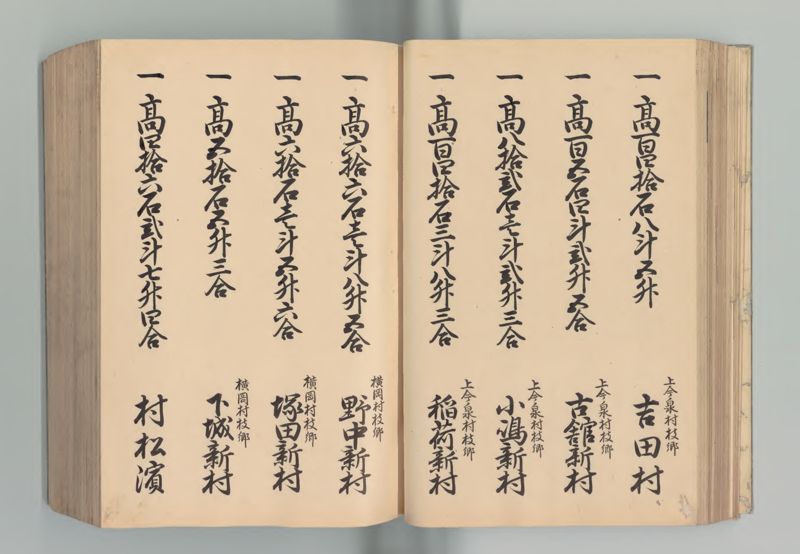 一 高百四拾石八斗五升
上今泉村枝郷
吉田村
一 高百五石四斗弐升五合
上今泉村枝郷
古舘新村
一 高八拾弐石壱斗弐升三合
上今泉村枝郷
小嶋新村
一 高百四拾石三斗八升三合
上今泉村枝郷
稲荷新村
一 高六拾六石壱斗八升五合
横岡村枝郷
野中新村
一 高六拾石壱斗五升六合
横岡村枝郷
塚田新村
一 高五拾石五升三合
横岡村枝郷
下城新村
一 高四拾六石弐斗七升四合
村松濱